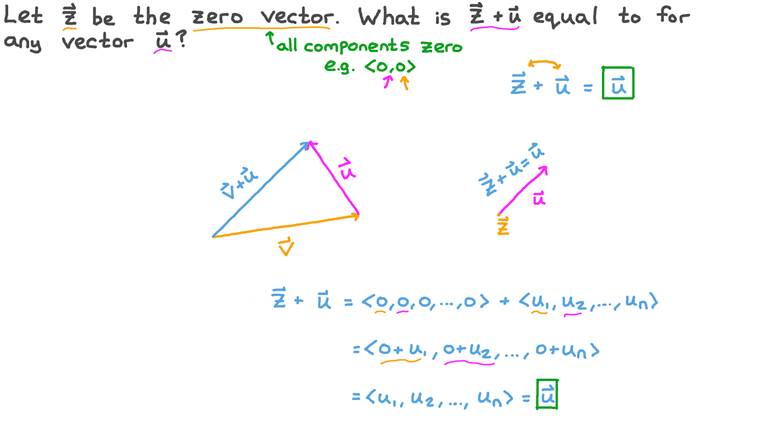 Let z⃗ be the zero vector. What is z⃗ + u⃗ equal to for
any vector u⃗?
all components zero
e.g. <0,0>
z⃗ + u⃗ = u⃗
v⃗+u⃗
u⃗
v⃗
z⃗+u⃗=u⃗
u⃗
z⃗
z⃗ + u⃗ = <0,0,0,...,0> + <u₁,u₂,...,uₙ>
=<0+u₁,0+u₂,...,0+uₙ>
=<u₁,u₂,...,uₙ> = u⃗